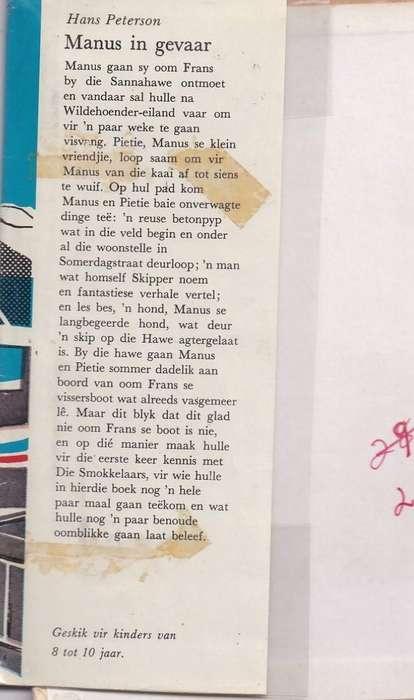 Hans Peterson
Manus in gevaar
Manus gaan sy oom Frans
by die Sannahawe ontmoet
en vandaar sal hulle na
Wildehoender-eiland vaar om
vir 'n paar weke te gaan
visvang. Pietie, Manus se klein
vriendjie, loop saam om vir
Manus van die kaai af tot siens
te wuif. Op hul pad kom
Manus en Pietie baie onverwagte
dinge teë: 'n reuse betonpyp
wat in die veld begin en onder
al die woonstelle in
Somerdagstraat deurloop; 'n man
wat homself Skipper noem
en fantastiese verhale vertel;
en les bes, 'n hond, Manus se
langbegeerde hond, wat deur
'n skip op die Hawe agtergelaat
is. By die hawe gaan Manus
en Pietie sommer dadelik aan
boord van oom Frans se
vissersboot wat alreeds vasgemeer
lê. Maar dit blyk dat dit glad
nie oom Frans se boot is nie,
en op dié manier maak hulle
vir die eerste keer kennis met
Die Smokkelaars, vir wie hulle
in hierdie boek nog 'n hele
paar maal gaan teëkom en wat
hulle nog 'n paar benoude
oomblikke gaan laat beleef.
Geskik vir kinders van
8 tot 10 jaar.